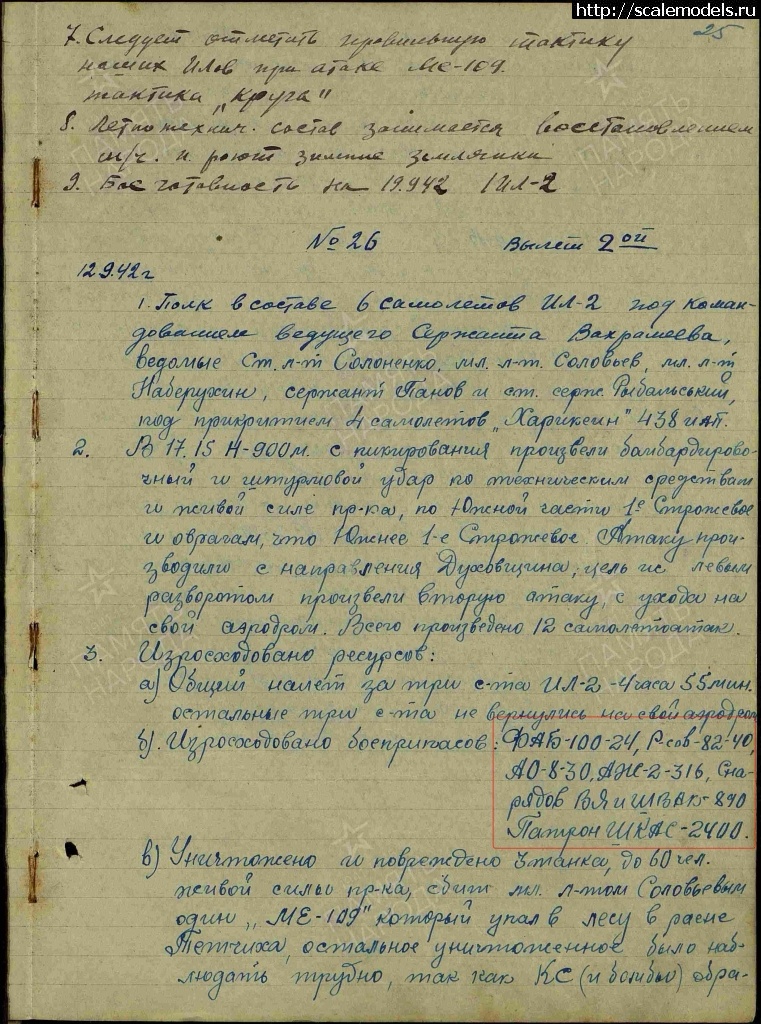 http://scalemodels.ru
25
7. Следует отметить правильную тактику
наших Илов при атаке МЕ-109.
тактика „Круга"
8. Летно технич. состав занимается восстановлением
м/ч. и роют зимние землянки
9. Бое готовность на 19.942 1 Ил-2
№ 26 Вылет 2ой
12 9.42 г
1. Полк в составе 6 самолетов ИЛ-2 под коман-
дованием ведущего Сержанта Вахрамеева,
ведомые Ст. л-т Солоненко, мл. л-т. Соловьев, мл. л-т
Наберухин, сержант Панов и ст. серж. Рыбальский,
под прикритием 4 самолетов „Харикеин" 438 иАП.
2. В 17.15 Н-900м. с пикирования произвели бомбардирово-
чный и штурмовой удар по техническим средствам
и живой силе пр-ка, по Южной части 1е Строжевое
и оврагам, что Южнее 1-е Строжевое. Атаку прои-
зводили с направления Духовщина, цель ис левым
разворотом произвели вторую атаку, с ухода на
свой аэродром. Всего произведено 12 самолетоатак.
3. Изросходовано ресурсов:
а) Общий налет за три с-та ИЛ-2 -4 часа 55 мин.
остальные три с-та не вернулись на свой аэродром
б). Изросходовано боеприпасов: ФАБ-100-24, Р-сов-82-40,
АО-8-30, АЖ-2-316, Сна-
рядов ВЯ и ШВАК-840
Патрон ШКАС-2400.
в) Уничтожено и повреждено 3 танка, до 60 чел.
живой силы пр-ка, сбит мл. л-том Соловьевым
один „МЕ-109" который упал в лесу в раене
Петчиха, остальное уничтоженное было наб-
людать трудно, так как КС (и бомбы) обра-